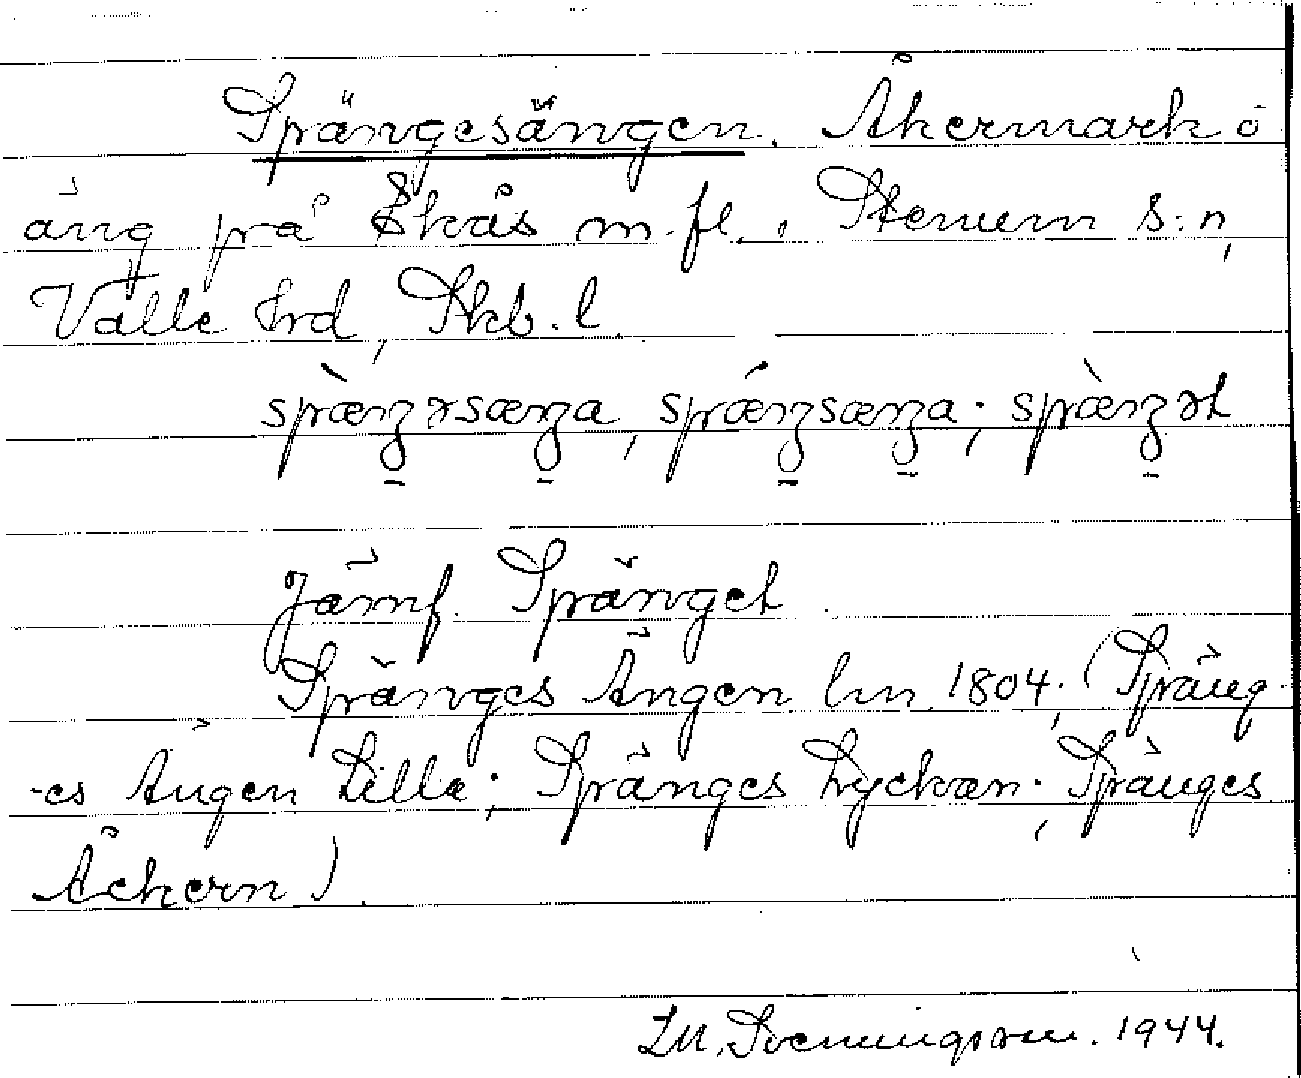 Spängesängen. Åkermark o
äng på Ekås m. fl., Stenum s:n,
Valle hrd, Skb. l.
spæ̀ŋəsæŋa, spǽŋsæŋa; spæ̀ŋət
Jämf. Spänget.
Spänges Ängen lm 1804; (Späng-
-es Ängen Lille; Spänges Lyckan; Spänges
Åckern).
LM. Svenningsson. 1944.